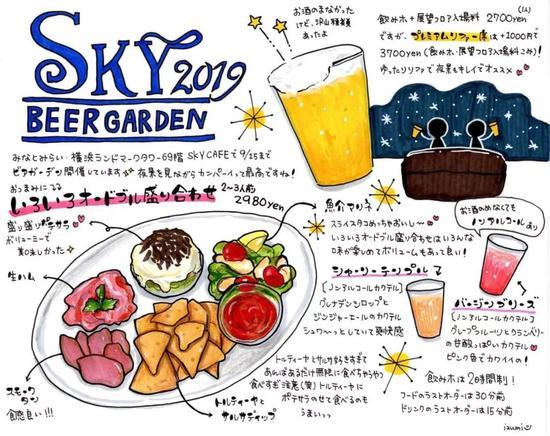 SKY 2019
BEER GARDEN
お酒のまなかった
けど、沢山種類
あったよ
飲みホ+展望フロア入場料 2700yen (1人)
ですが、プレミアムソファー席は+1000円で
3700yen (飲みホ・展望フロア入場料こみ)!
ゆったりソファで夜景もキレイでオススメ
みなとみらい 横浜ランドマークタワー69階 SKY CAFEで 9/25まで
ビヤガーデン開催しています 夜景を見ながらカンパーイって最高ですね!
おつまみになる
いろいろオードブル盛り合わせ 2~3人前
2980yen
盛り盛りポテサラ
ボリューミーで
美味しかった
生ハム
スモーク
タン
食感良い!!!
魚介マリネ
スライスタコめっちゃおいし~
いろいろオードブル盛り合わせはいろんな
味が楽しめてボリュームもあって良い!
シャーリーテンプル
[ノンアルコールカクテル]
グレナデンシロップと
ジンジャーエールのカクテル
シュワ~っとしていて爽快感
お酒のめなくても
ノンアルコールあり
バージンブリーズ
[ノンアルコールカクテル]
グレープフルーツとクランベリー
の甘酸っぱいカクテル
ピンク色でカワイイの!
トルティーヤと
サルサディップ
トルティーヤとサルサ好きすぎて
あんばあるだけ無限に食べちゃうやつ
食べすぎ注意(笑)トルティーヤに
ポテサラのせて食べるのも
うまいっっ
飲みホは2時間制!
フードのラストオーダーは30分前
ドリンクのラストオーダーは15分前
izumi